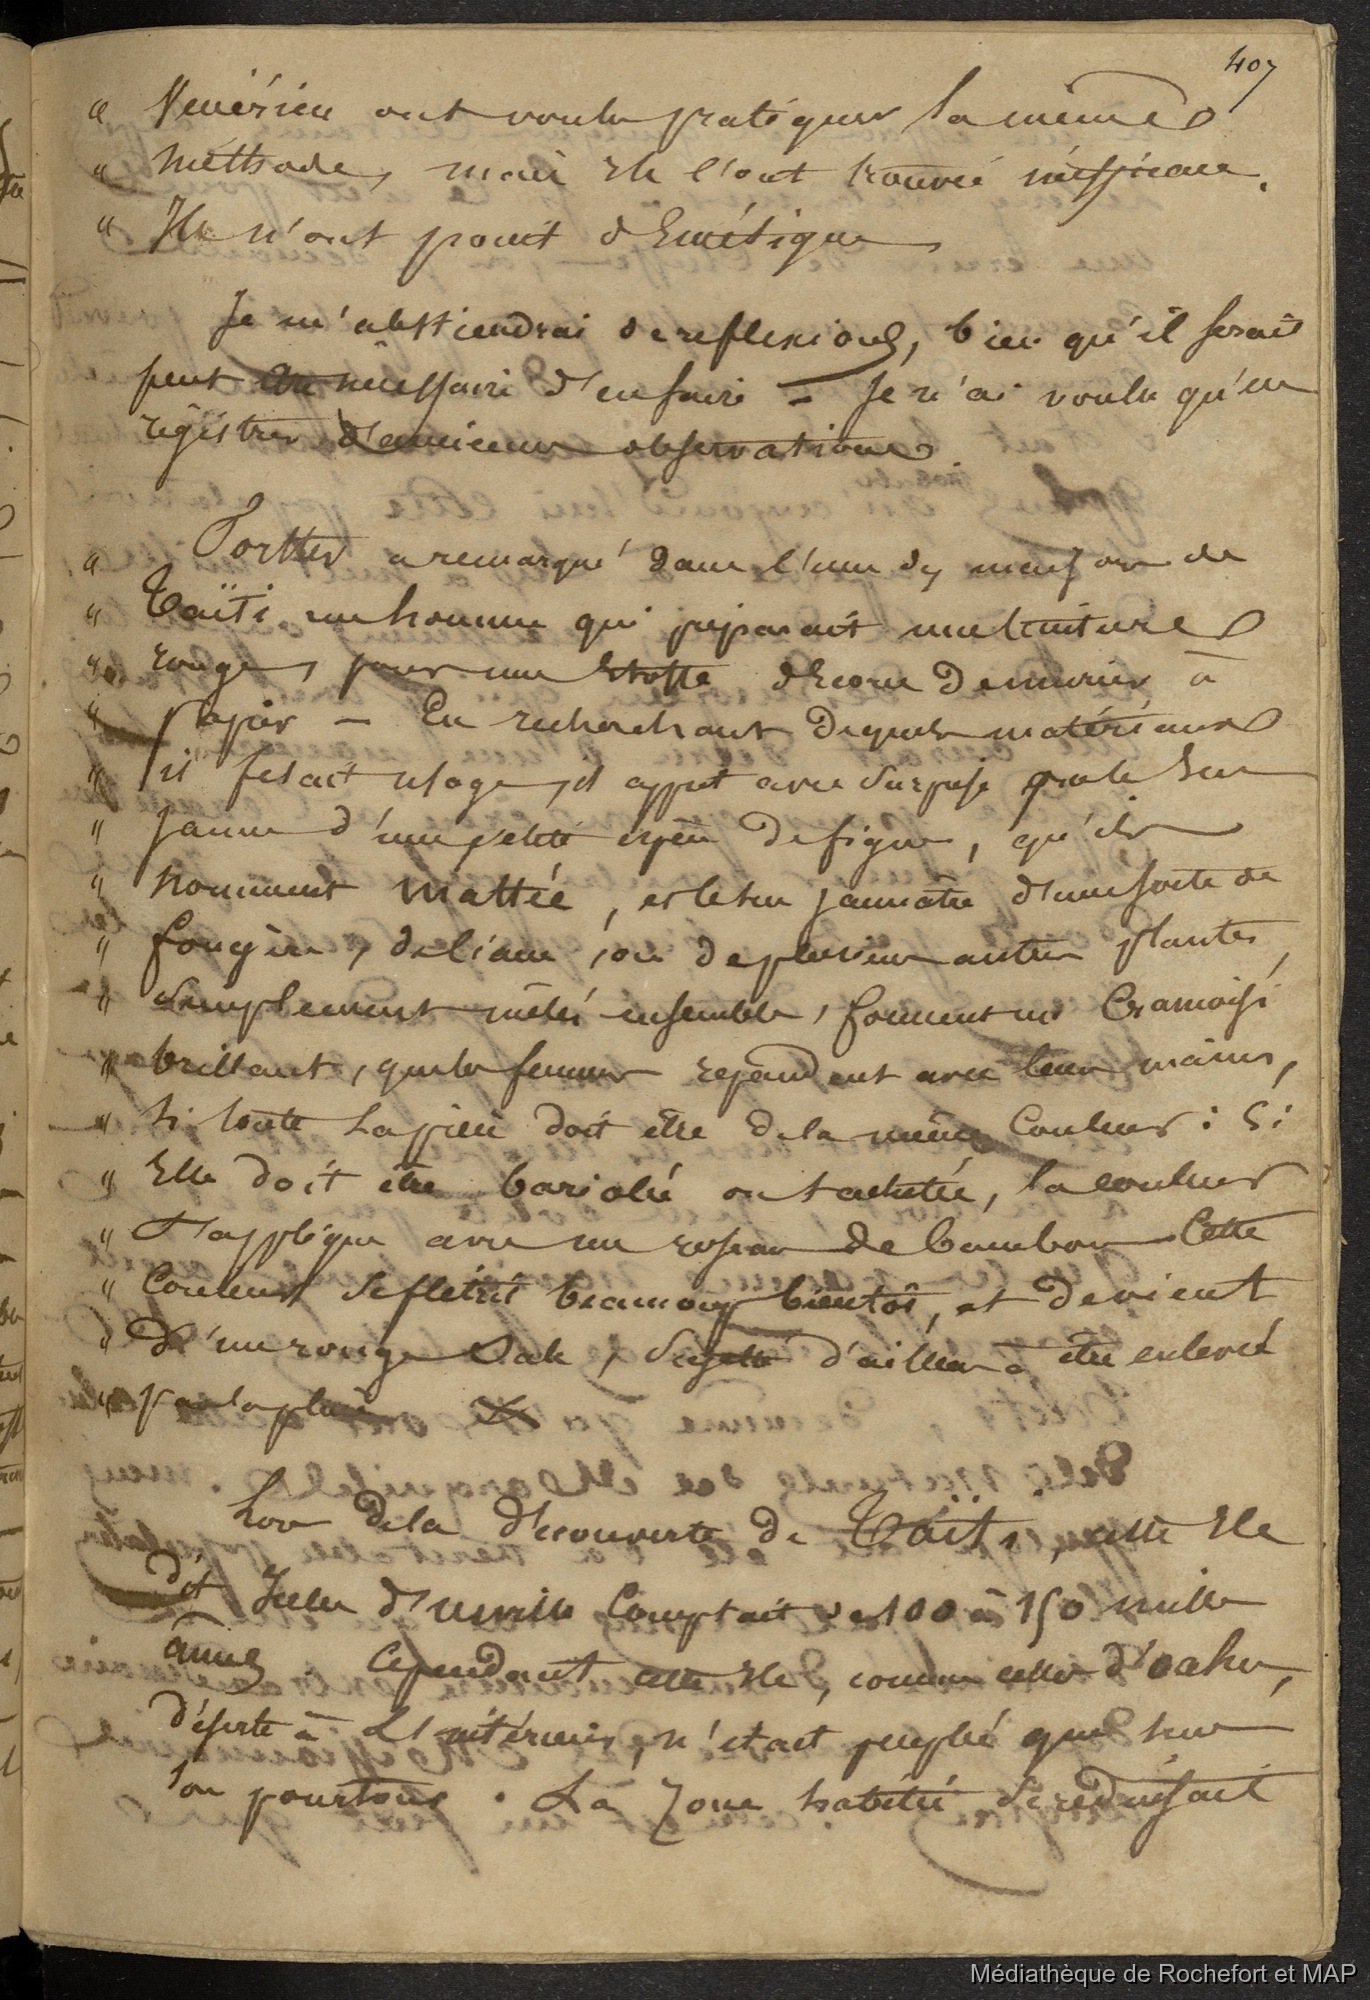 407
" Vénérien ont voulu pratiquer la même
" méthode, mais ils l'ont trouvée inefficace.
" Ils n'ont point d'Emétique,
Je m'abstiendrai de reflexions, bien qu'il serait
peut être nécessaire d'en faire - Je n'ai voulu qu'en
régistrer d'anciennes observations.
" Forster a remarqué dans l'une des maisons de
" Taïti un homme qui préparait une teinture
" rouge, pour une Etoffe d'Ecorce de murier à
" papier - En recherchant de quels matériaux
" il fesait usage, il apprit avec surprise que le suc
" jaune d'une petite espèce de figue, qu'ils
" nomment Mattée, et le suc jaunâtre d'une sorte de
" fougère, de liane, ou de plusieurs autres plantes,
" simplement mêlés ensemble, forment un Cramoisi
" brillant, que les femmes repandent avec leurs mains,
" si toute la pièce doit être de la même Couleur : Si
" Elle doit être bariolée ou tachetée, la couleur
" s'applique avec un roseau de bambou. Cette
" Couleur se flétrit beaucoup bientôt, et devient
" d'un rouge sale, sujette d'ailleurs à être enlevée
" par la pluie
Lors de la découverte de Taïti, cette Ile
dit Jules d'Urville Comptait de 100 à 150 mille
âmes. Cependant cette Ile, comme celle d'oahu,
déserte à L'intérieur, n'était peuplée que sur
son pourtour. La Zone habitée se réduisait
Médiathèque de Rochefort et MAP